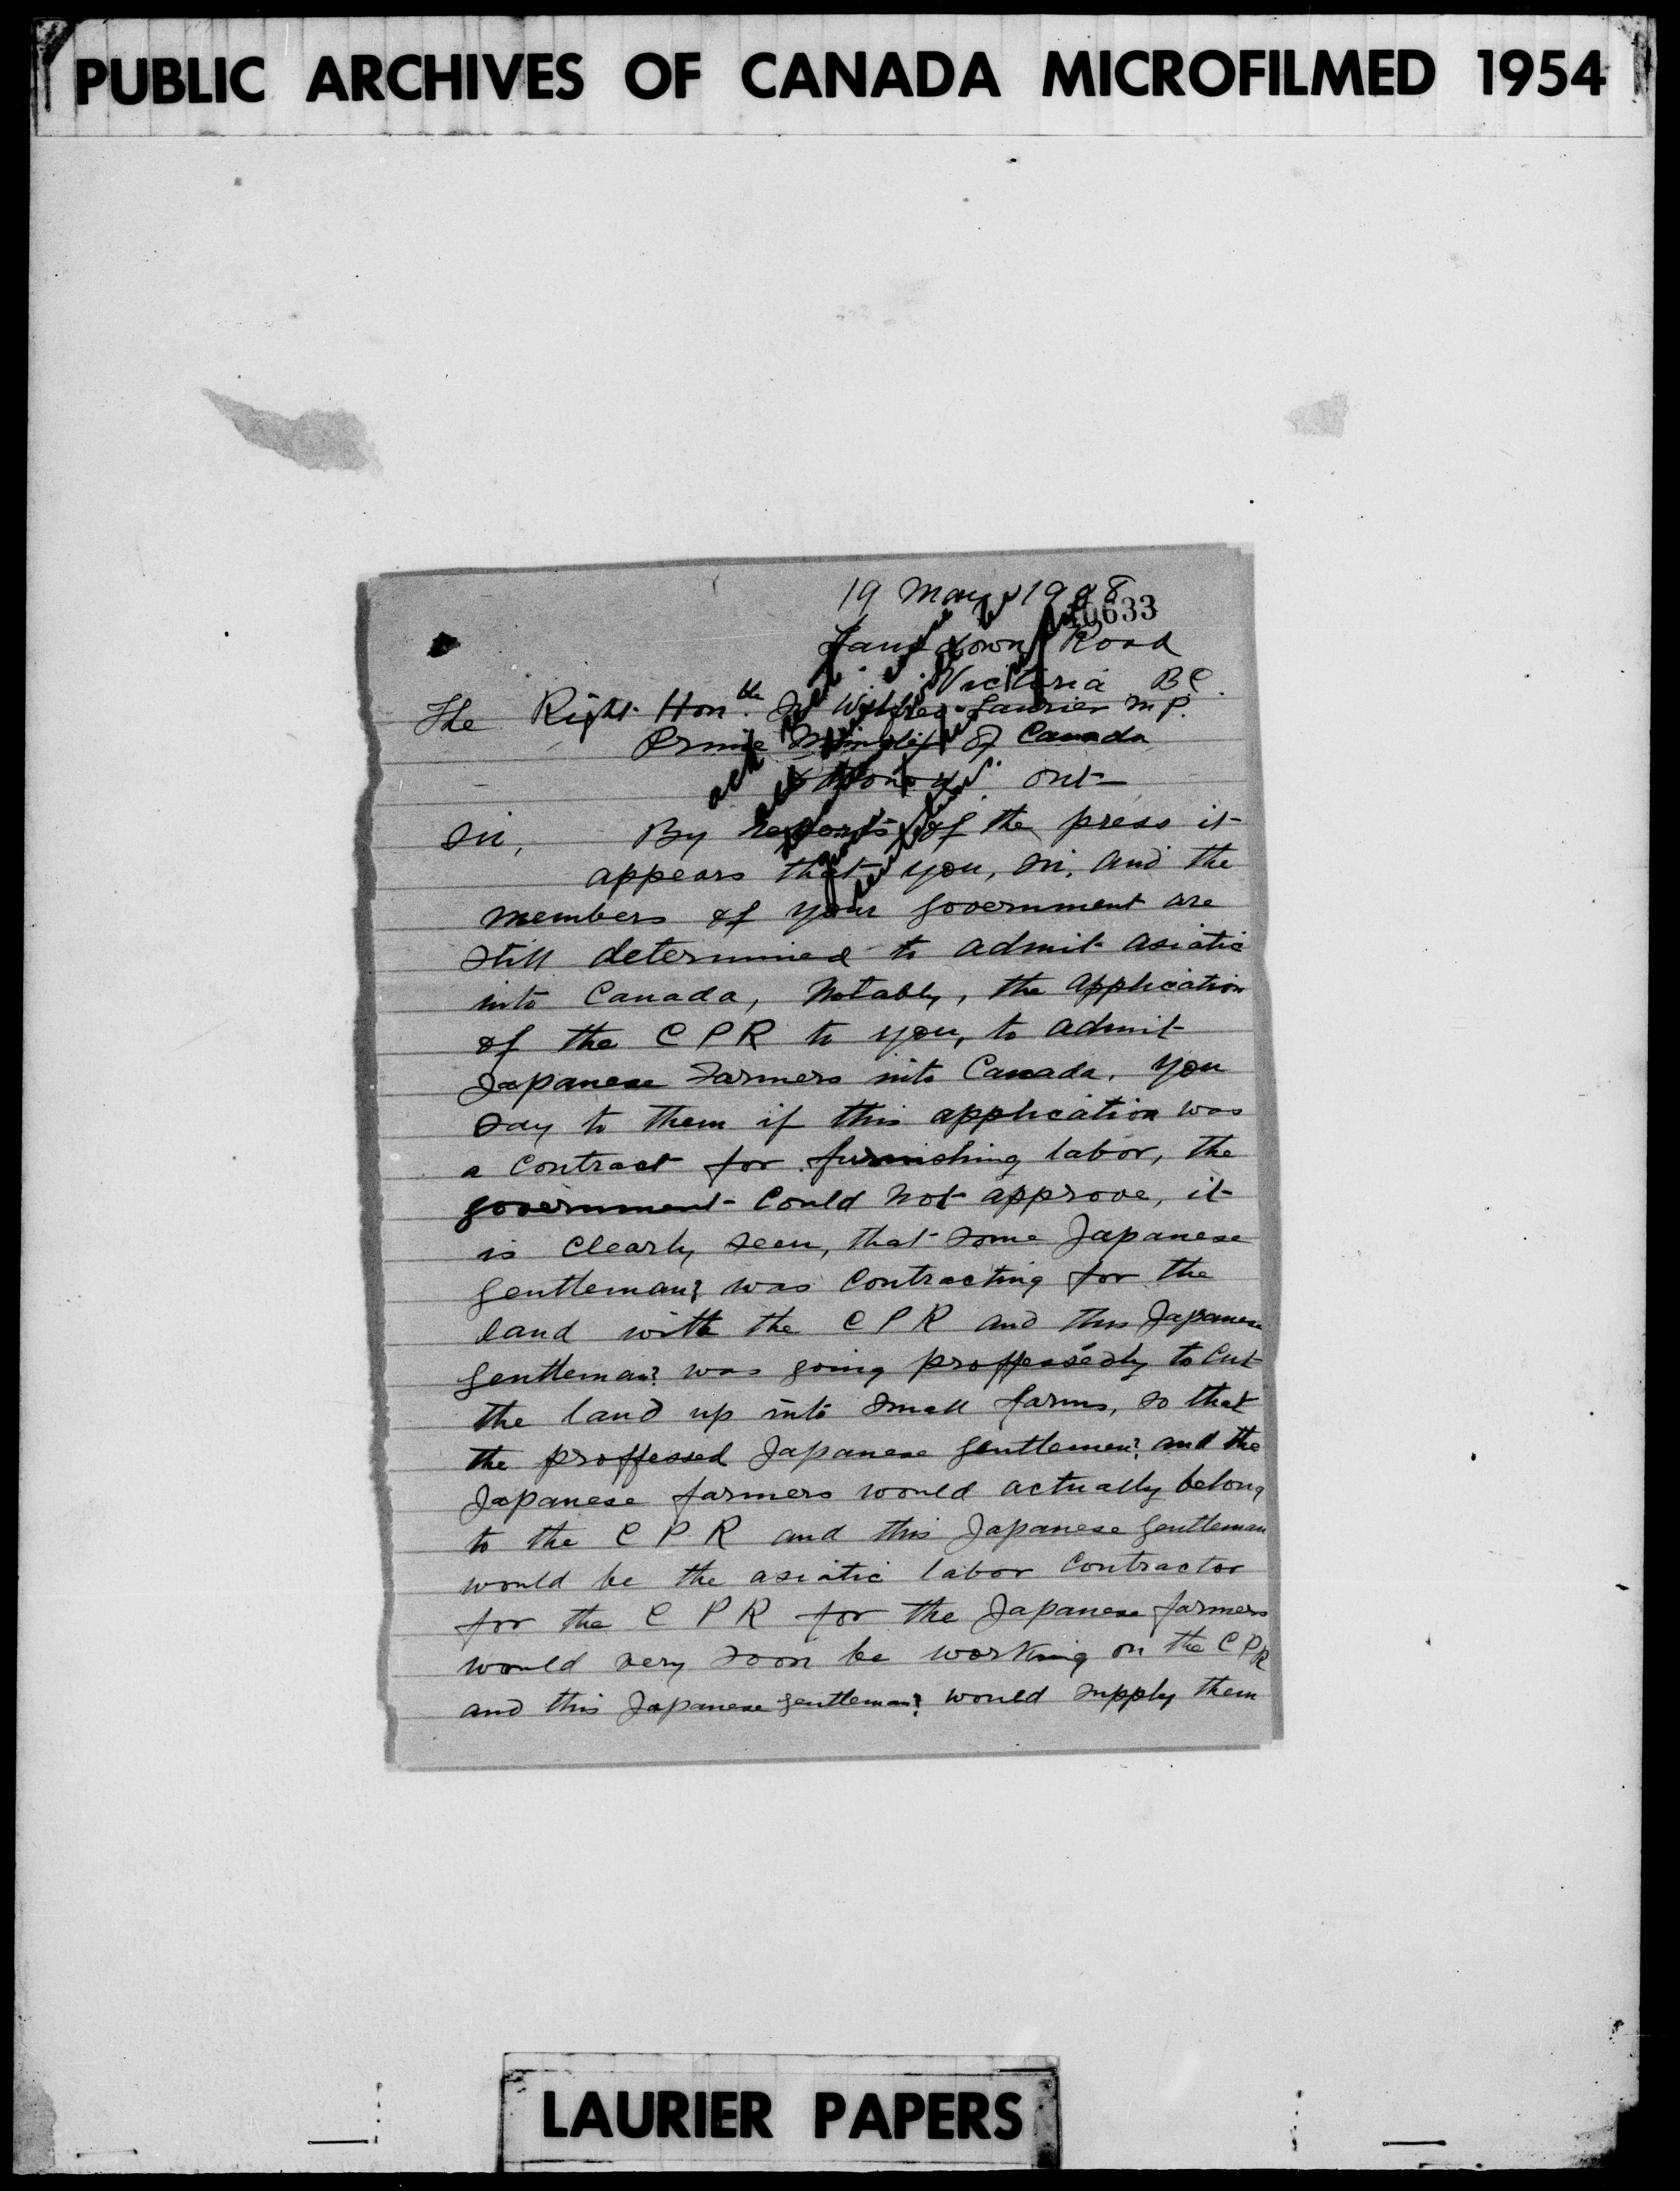 PUBLIC ARCHIVES OF CANADA MICROFILMED 1954
19 May 1908
Lansdown Road
Victoria BC.
The Right Hon.ble Sr Wilfred Laurier M.P.
Prime Minister of Canada
Ottawa Ont
Sir, By reports of the press it
appears that you, Sir, and the
members of your government are
still determined to admit asiatic
into Canada, Notably, the application
of the C P R to you, to admit
Japanese Farmers into Canada. You
say to them if this application was
a contract for furnishing labor, the
government could not approve, it
is clearly seen, that some Japanese
gentleman? was contracting for the
land with the C P R and this Japanese
gentleman? was going proffessedly to cut
the land up into small farms, so that
the proffessed Japanese gentlemen? and the
Japanese farmers would actually belong
to the C P R and this Japanese gentleman
would be the asiatic labor contractor
for the C P R for the Japanese farmers
would very soon be working on the C P R
and this Japanese gentleman? would supply them
LAURIER PAPERS